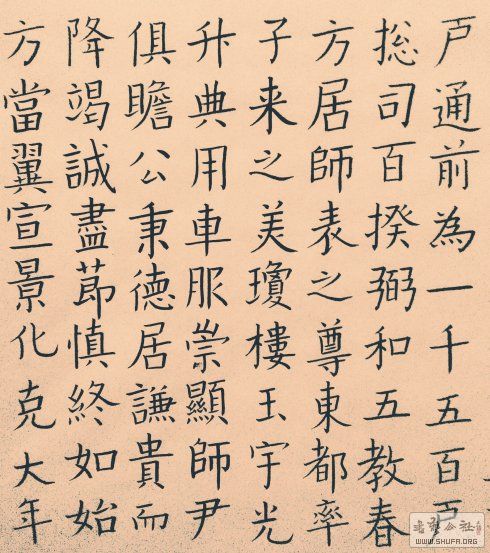 户通前為一千五百户
捴司百揆弼和五教春
方居師表之尊東都率
子来之美瓊樓玉宇光
升典用車服崇顯師尹
俱瞻公秉德居謙貴而
降竭誠盡節慎終如始
方當翼宣景化克大年
WWW.SHUFA.ORG